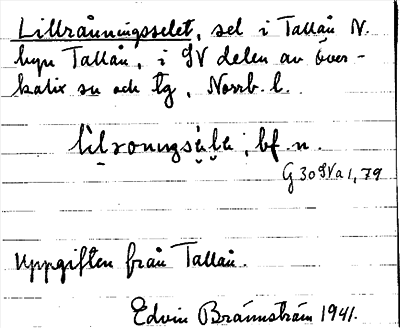 Lillrånningsselet, sel i Tallån N.
byn Tallån, i SV delen av Över-
kalix sn och tg, Norrb. l.
bf. n.
G 30 SV a 1, 79
Uppgiften från Tallån.
Edvin Brännström 1941.